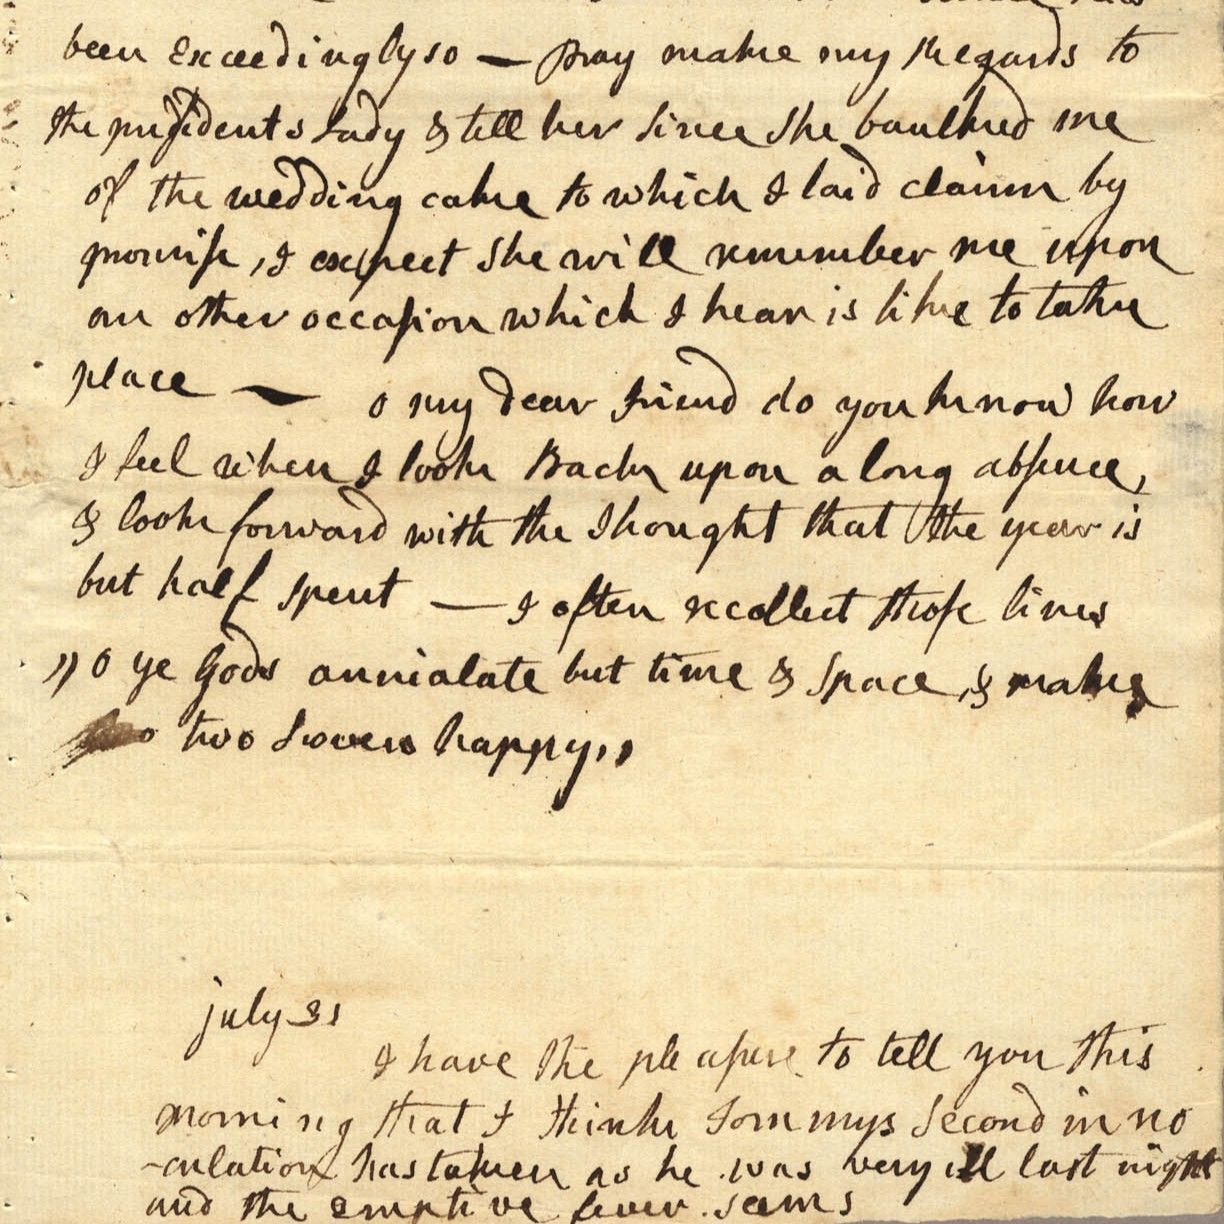 been exceedingly so — pray make my Regards to
the presidents Lady & tell her since she baulked me
of the wedding cake to which I laid claim by
promise, I expect she will remember me upon
an other occasion which I hear is like to take
place — o my dear Friend do you know how
I feel when I look Back upon a long absence,
& look forward with the Thought that the year is
but half spent — I often recollect those lines
"o ye Gods annialate but time & space, & make
two Lovers happy"
july 31
I have the pleasure to tell you this
morning that I think Tommys Second inno
-culation has taken as he was very ill last night
and the eruptive fever seems